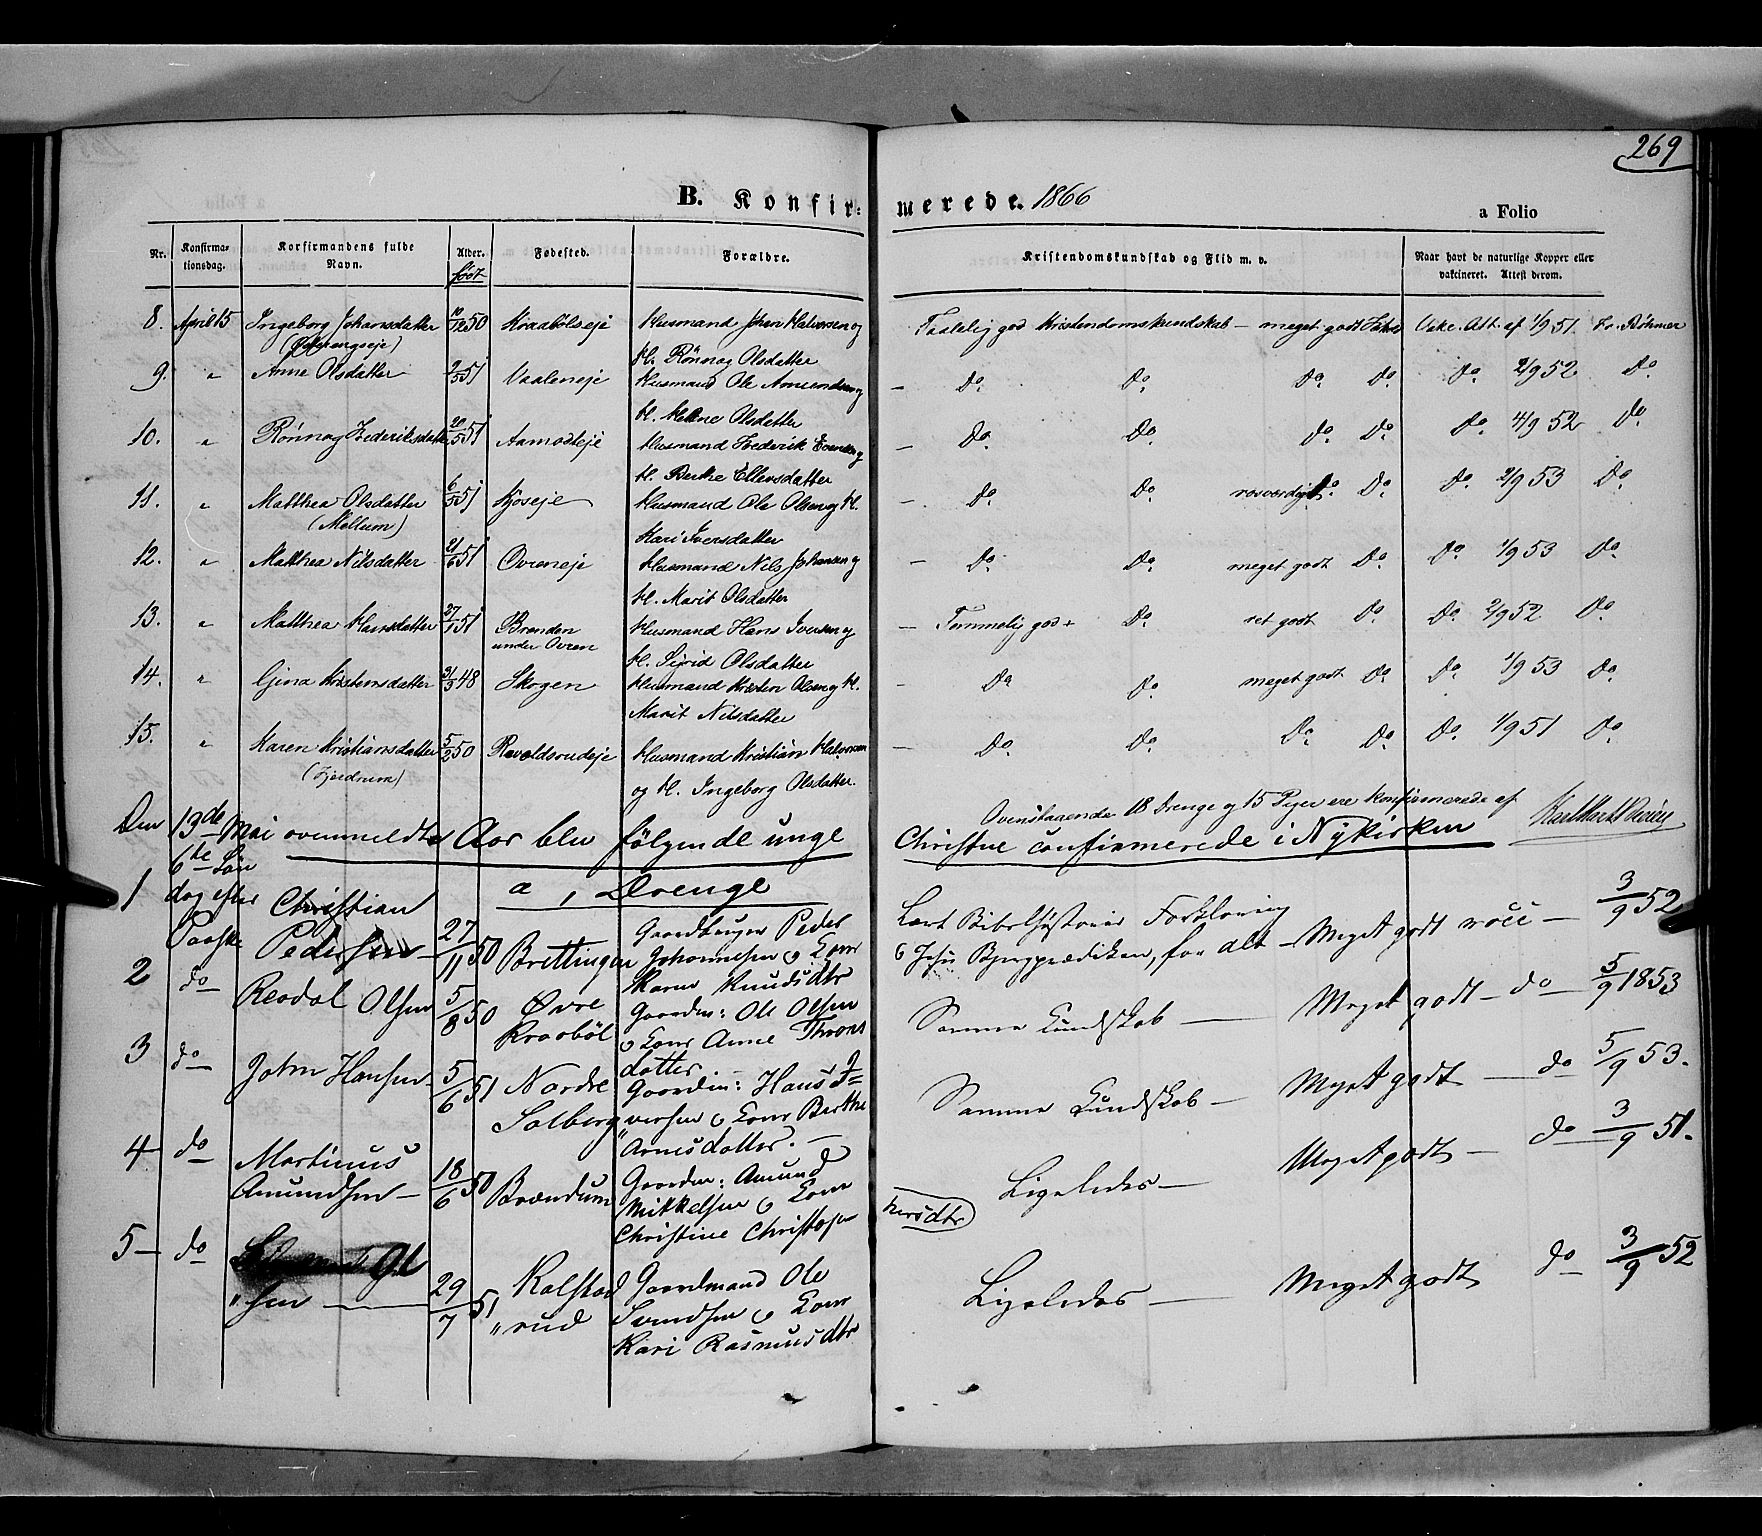 269
B. Konfirmerede. 1866
a Folio
Nr. Konfirmationsdag. Konfirmandens fulde Navn. Alder. født Fødested. Forældre. Kristendomskundskab og Flid m. v. Naar havt de naturlige Kopper eller vakcineret. Attest derom.
8. April 15 Ingeborg Johansdatter 10/12 50 Kraabølseje Husmand Johan Halvorsen og Taalelig god Kristendomskundskab – meget godt Forhold Vakc. Att. af 1/9 51. Bøhmer
H. Rønnog Olsdatter
9. " Anne Olsdatter 2/5 51 Vaaleneje Husmand Ole Amundsen og – Do. Do. Do. Do. Do. 2/9 52 Do.
H. Helene Olsdatter
10. " Rønnog Frederiksdatter 20/5 51 Aamodteje Husmand Frederik Evensen og – Do. Do. Do. Do. Do. 4/9 52 Do.
H. Berthe Ellensdatter
11. " Matthea Olsdatter 6/5 51 Kjoseje Husmand Ole Olsen og H. – Do. Do. rosværdigt Do. Do. 2/9 53 Do.
(Mællum)
Kari Iversdatter
12. " Matthea Nilsdatter 21/6 51 Ovreneje Husmand Nils Johansen og – Do. Do. meget godt Do. Do. 1/9 53 Do.
H. Marit Olsdatter
13. " Matthea Hansdatter 27/1 51 Brenden Husmand Hans Iversen og – Temmelig god + Do. ret godt Do. Do. 2/9 52 Do.
under Ovren
H. Sigrid Olsdatter
14. " Gina Kristensdatter 31/3 48 Skogen Husmand Kristen Olsen og H. – Do. Do. meget godt Do. Do. 1/9 53 Do.
Marit Nilsdatter
15. " Karen Kristiansdatter 5/2 50 Revoldsrudeje Husmand Kristian Halvorsen – Do. Do. Do. Do. Do. 1/9 51 Do.
og H. Ingeborg Olsdatter.
Ovenstaaende 18 Drenge og 15 Piger ere konfirmerede af
Den 13de Mai ovenmeldte Aar blev følgende unge Christne confirmerede i Nykirken
a, Drenge
1 6te Søndag efter Paaske Christian Pedersen – 27/11 50 Brettingen Gaardbruger Peder Lært Bibelhistorie Forklaring – Meget godt – 3/9 52
Johannesen & Kone 6 Jesu Bjergprædiken, for alt –
Karen Knudsdtr
2 do Reodol Olsen 5/8 50 Øvre Kraabøl Gaardm: Ole Olsen Samme Kundskab – Meget godt – do – 5/9 1853
& Kone Anne Throns
datter. –
3 do John Hansen 5/6 51 Nordre Solberg Gaardm: Hans I= Samme Kundskab – Meget godt – do 5/9 53.
versen & Kone Berthe
Arnesdatter. –
4 do Martinus Amundsen – 18/6 50 Brændum Gaardm: Amund Ligeledes – Meget godt – do 3/9 51.
Mikkelsen & Kone
Christine Christopher
hersdtr
5 – do Ol
"sen – 29/7 51 Kalstad Gaardmand Ole Ligeledes – Meget godt do 3/9 52
"rud Svendsen & Kone
Kari Rasmusdtr